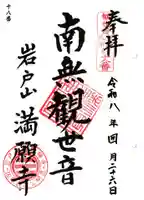 奉拝
令和八年四月二十六日
南無観世音
岩戸山 満願寺
十八番